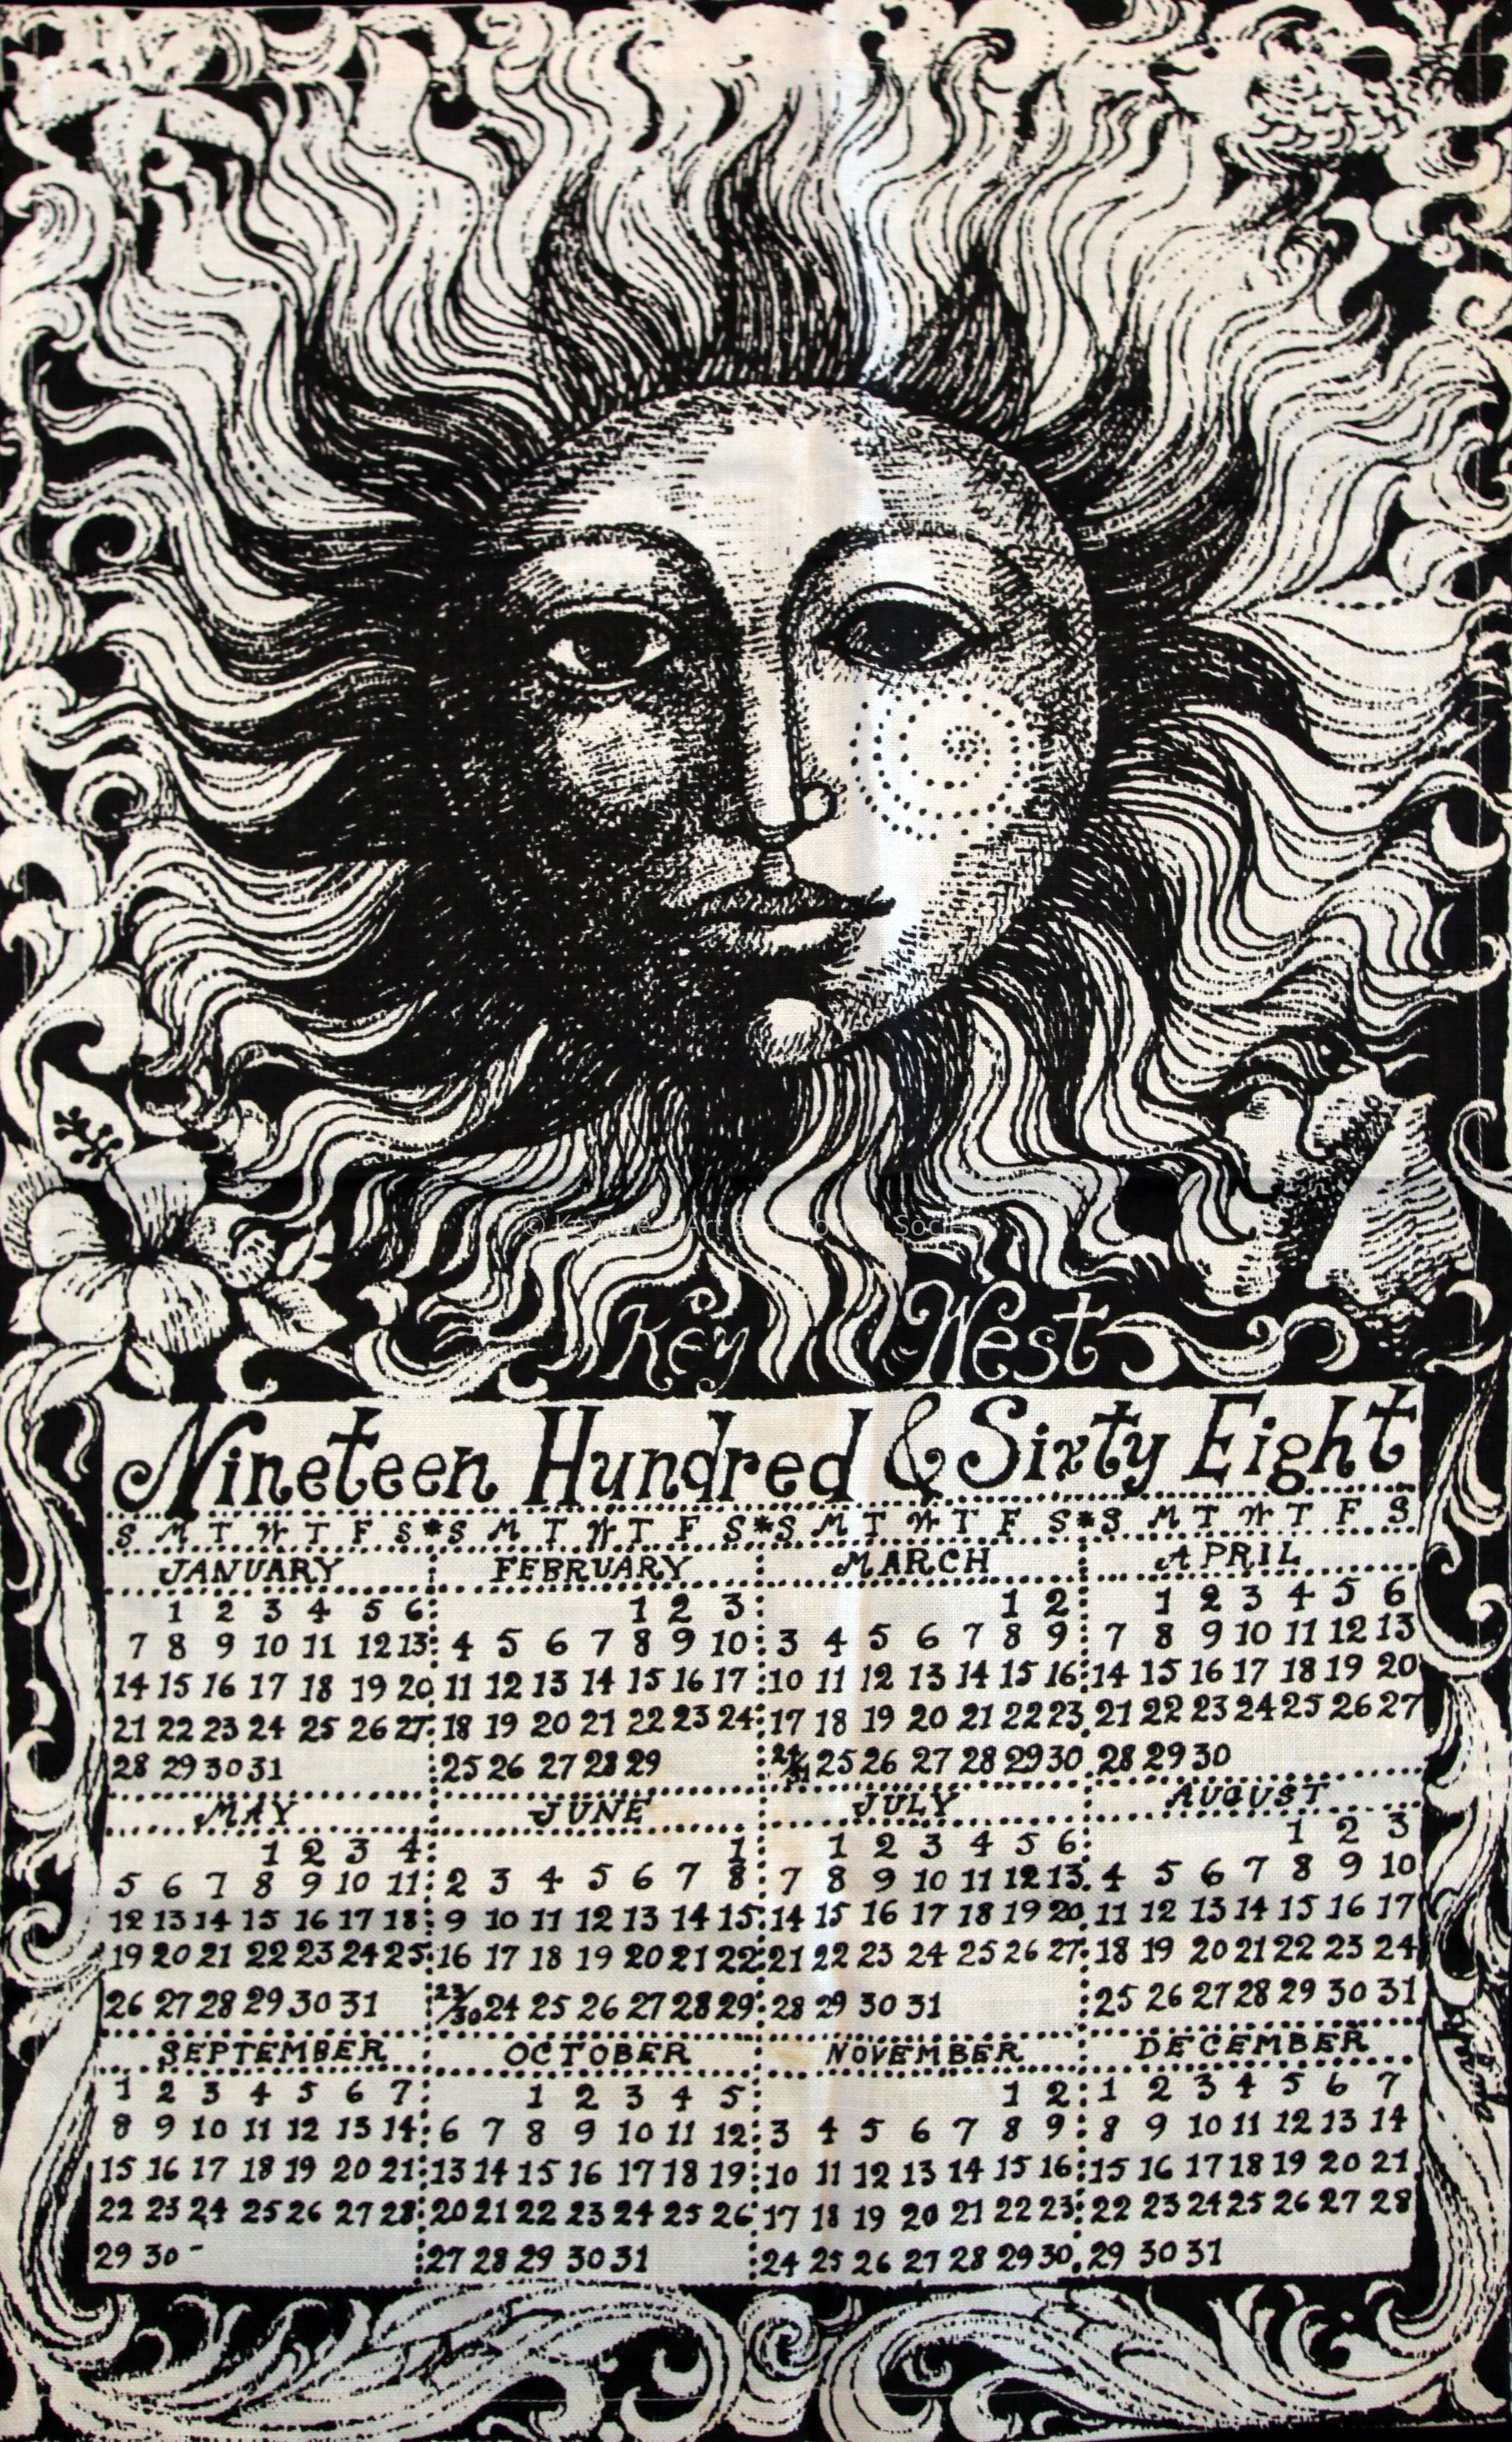 © Key West Art & Historical Society
Key West
Nineteen Hundred & Sixty Eight
S M T W T F S * S M T W T F S * S M T W T F S * S M T W T F S
JANUARY FEBRUARY MARCH APRIL
1 2 3 4 5 6 1 2 3 1 2 1 2 3 4 5 6
7 8 9 10 11 12 13 4 5 6 7 8 9 10 3 4 5 6 7 8 9 7 8 9 10 11 12 13
14 15 16 17 18 19 20 11 12 13 14 15 16 17 10 11 12 13 14 15 16 14 15 16 17 18 19 20
21 22 23 24 25 26 27 18 19 20 21 22 23 24 17 18 19 20 21 22 23 21 22 23 24 25 26 27
28 29 30 31 25 26 27 28 29 24/31 25 26 27 28 29 30 28 29 30
MAY JUNE JULY AUGUST
1 2 3 4 1 1 2 3 4 5 6 1 2 3
5 6 7 8 9 10 11 2 3 4 5 6 7 8 7 8 9 10 11 12 13 4 5 6 7 8 9 10
12 13 14 15 16 17 18 9 10 11 12 13 14 15 14 15 16 17 18 19 20 11 12 13 14 15 16 17
19 20 21 22 23 24 25 16 17 18 19 20 21 22 21 22 23 24 25 26 27 18 19 20 21 22 23 24
26 27 28 29 30 31 23/30 24 25 26 27 28 29 28 29 30 31 25 26 27 28 29 30 31
SEPTEMBER OCTOBER NOVEMBER DECEMBER
1 2 3 4 5 6 7 1 2 3 4 5 1 2 1 2 3 4 5 6 7
8 9 10 11 12 13 14 6 7 8 9 10 11 12 3 4 5 6 7 8 9 8 9 10 11 12 13 14
15 16 17 18 19 20 21 13 14 15 16 17 18 19 10 11 12 13 14 15 16 15 16 17 18 19 20 21
22 23 24 25 26 27 28 20 21 22 23 24 25 26 17 18 19 20 21 22 23 22 23 24 25 26 27 28
29 30 - 27 28 29 30 31 24 25 26 27 28 29 30 29 30 31